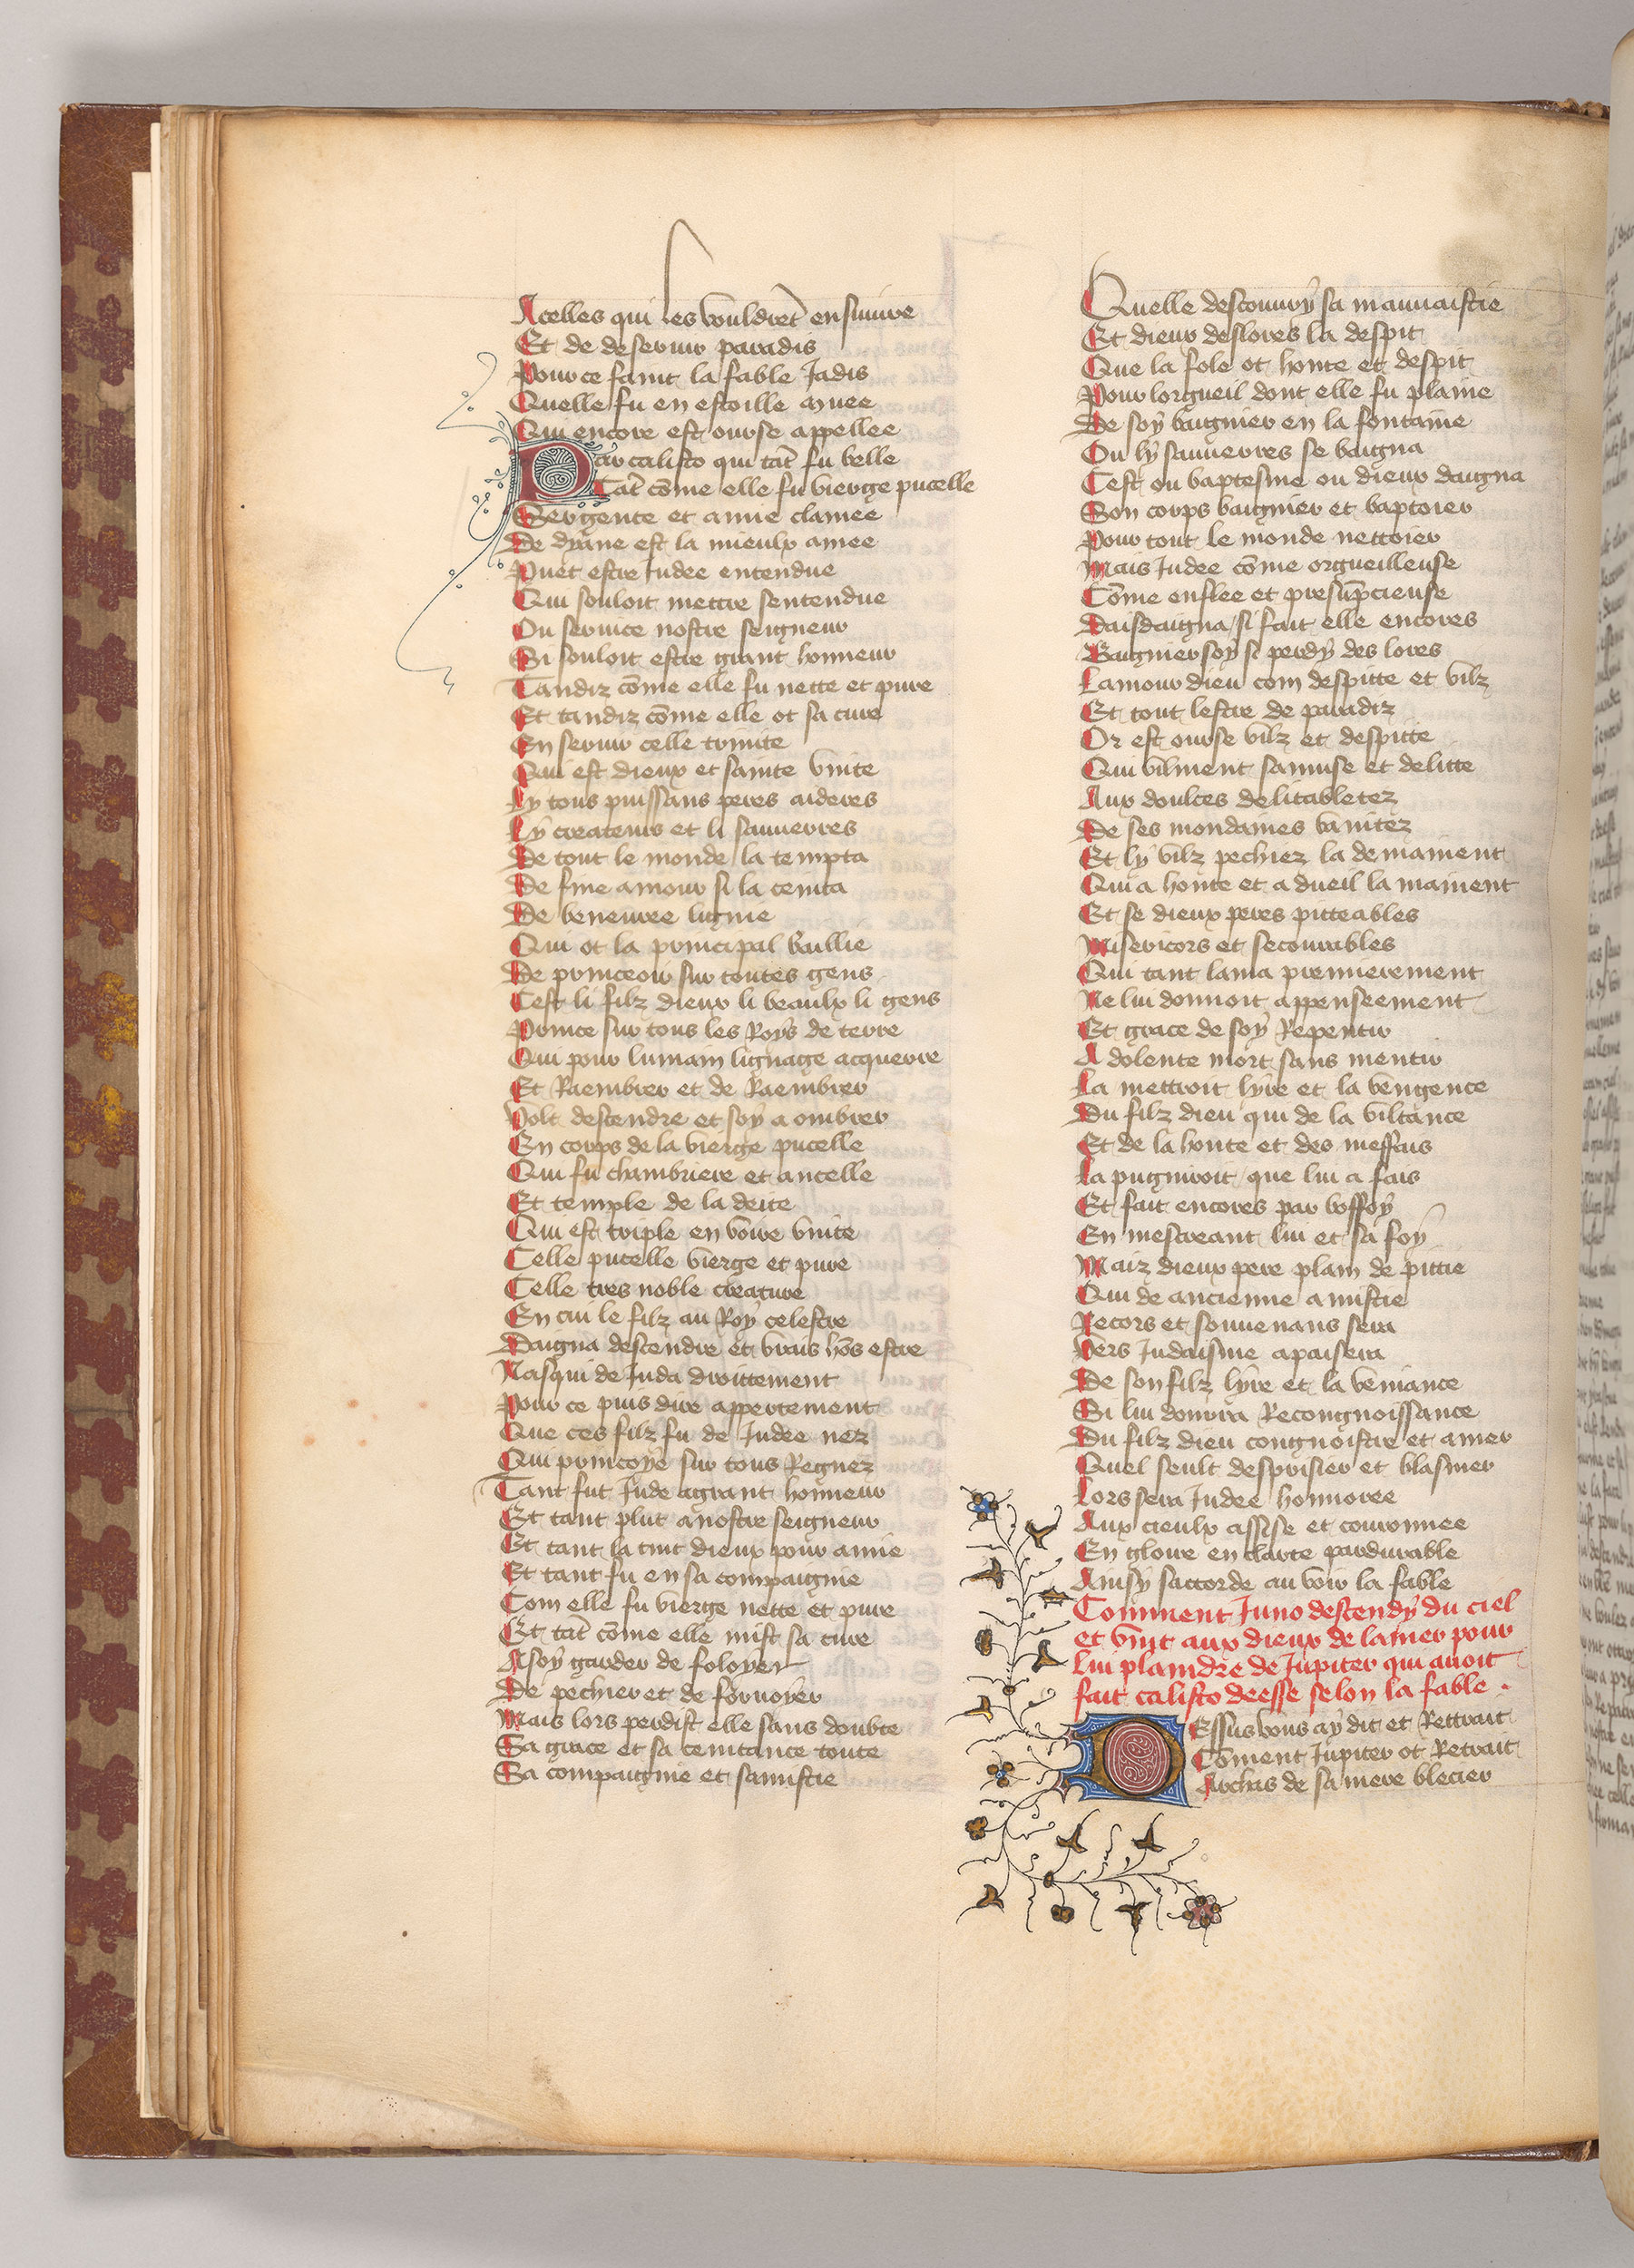 Acelles qui les vouldret ensuiure
Et de deseruir paradis
Pour ce faint la fable Jadis
Quelle fu en estoille muee
Qui encore est ourse appellee
Par calisto qui tāt fu belle
Tāt cōme elle fu vierge pucelle
Sergente et amie clamee
De dyane est la mieulx amee
Puet estre Iudee entendue
Qui souloit mettre sentendue
Ou seruice nostre seigneur
Si souloit estre grant honneur
Tandiz cōme elle fu nette et pure
Et tandiz cōme elle ot sa cure
En seruir celle trinite
Qui est dieux et sainte vnite
Ly tous puissans peres aideres
Ly createurs et li sauuerres
De tout le monde la tempta
De fine amour si la ceinta
De beneuree lignie
Qui ot la principal baillie
De princeoir sur toutes gens
Cest li filz dieux li beaulx li gens
Prince sur tous les Roys de terre
Qui pour lumain lignage acquerre
Et Raembrer et de Raembrer
Volt descendre et soy a ombrer
En corps de la vierge pucelle
Qui fu chambriere et ancelle
Et temple de la deite
Qui est triple en voire vnite
Celle pucelle vierge et pure
Celle tres noble creature
En cui le filz au Roy celestre
Daigna descendre et vrais hōs estre
Nasqui de Iuda droittement
Pour ce puis dire appertement
Que ces filz fu de Iudee nez
Qui princoye sur tous Regnez
Tant fut Iude agrant honneur
Et tant plut anostre seigneur
Et tant la tint dieux pour amie
Et tant fu en sa compaignie
Com elle fu vierge nette et pure
Et tāt cōme elle mist sa cure
Asoy garder de foloyer
De pechier et de foruoyer
Mais lors perdist elle sans doubte
Sa grace et sa ceintance toute
Sa compaignie et samistie
Quelle descouury sa mauuaistie
Et dieux deslores la despit
Que la fole ot honte et despit
Pour lorgueil dont elle fu plaine
De soy baignier en la fontaine
Ou ly sauuerres se baigna
Cest ou baptesme ou dieux daigna
Son corps baignier et baptoier
Pour tout le monde nettoier
Mais Iudee cōme orgueilleuse
Cōme enflee et presūpcieuse
Daisdaigna si fait elle encores
Baignier soy si perdy des lores
Lamour dieu com despitte et vilz
Et tout lestre de paradiz
Or est ourse vilz et despitte
Qui vilment samuse et delitte
Aux doulces delitabletez
De ses mondaines vanitez
Et ly vilz pechiez la demainent
Qui a honte et a dueil la mainent
Et se dieux peres pitteables
Misericors et secourables
Qui tant lama premierement
Ne lui donnoit appenseement
Et grace de soy Repentir
A dolente mort sans mentir
La mettroit lyre et la vengence
Du filz dieu qui de la viltance
Et de la honte et des meffais
La pugniroit que lui a fais
Et fait encores par boffoy
En mescreant lui et sa foy
Maiz dieux pere plain de pitie
Qui de ancienne amistie
Recors et souuenans sera
Vers Iudaisme apaisera
De son filz lyre et la veniance
Si lui donrra Recongnoissance
Du filz dieu congnoistre et amer
Quel seult desprisier et blasmer
Lors sera Iudee honnoree
Aux cieulx assise et couronnee
En gloire en clarte pardurable
Ainsy saccorde au voir la fable
Comment Iuno descendy du ciel
et vint aux dieux de lamer pour
lui plaindre de Iupiter qui auoit
fait calisto deesse selon la fable .
Dessus vous ay dit et Rettrait
Cōment Iupiter ot Retrait
Archas de sa mere blecier